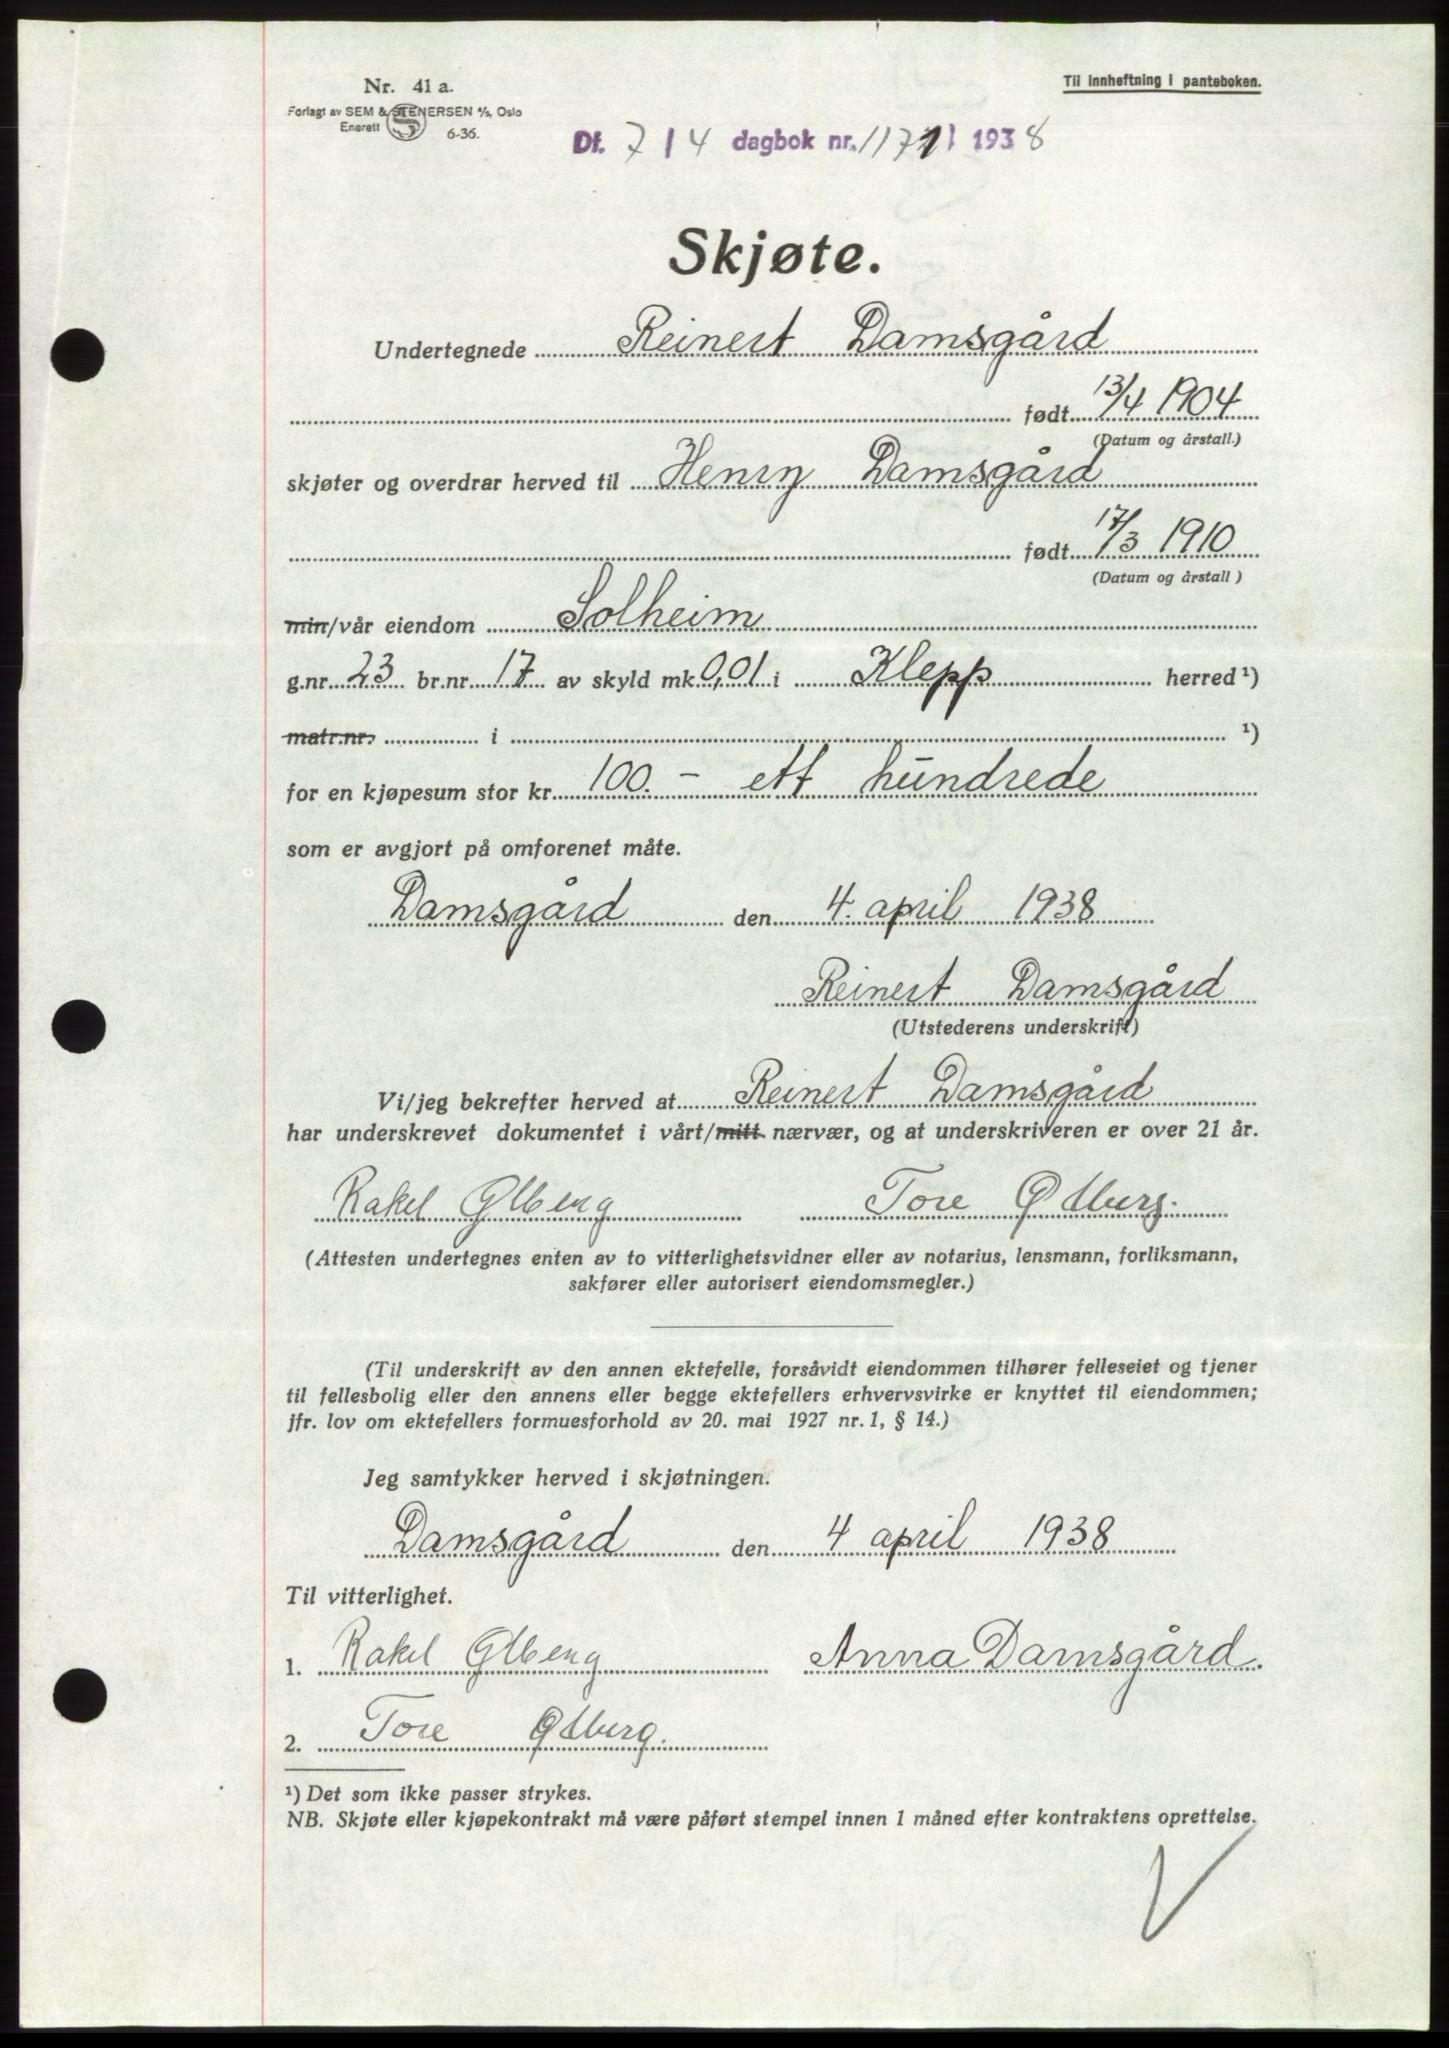 Nr. 41 a.
Til innheftning i panteboken.
Forlagt av SEM & STENERSEN A/S, Oslo
Enerett 6-36.
Df. 7 / 4 dagbok nr. 1171 1938
Skjøte.
Undertegnede Reinert Damsgård
født 13/4 1904
(Datum og årstall.)
skjøter og overdrar herved til Henry Damsgård
født 17/3 1910
(Datum og årstall)
min/vår eiendom Solheim
g.nr. 23 br.nr. 17 av skyld mk. 0,01 i Klepp herred ¹)
matr.nr. i ¹)
for en kjøpesum stor kr. 100.- ett hundrede
som er avgjort på omforenet måte.
Damsgård den 4. april 1938
Reinert Damsgård
(Utstederens underskrift)
Vi/jeg bekrefter herved at Reinert Damsgård
har underskrevet dokumentet i vårt/mitt nærvær, og at underskriveren er over 21 år.
Rakel Tore
(Attesten undertegnes enten av to vitterlighetsvidner eller av notarius, lensmann, forliksmann,
sakfører eller autorisert eiendomsmegler.)
(Til underskrift av den annen ektefelle, forsåvidt eiendommen tilhører felleseiet og tjener
til fellesbolig eller den annens eller begge ektefellers erhvervsvirke er knyttet til eiendommen;
jfr. lov om ektefellers formuesforhold av 20. mai 1927 nr. 1, § 14.)
Jeg samtykker herved i skjøtningen.
Damsgård den 4 april 1938
Til vitterlighet.
1. Rakel Anna Damsgård.
2. Tore
¹) Det som ikke passer strykes.
NB. Skjøte eller kjøpekontrakt må være påført stempel innen 1 måned efter kontraktens oprettelse.